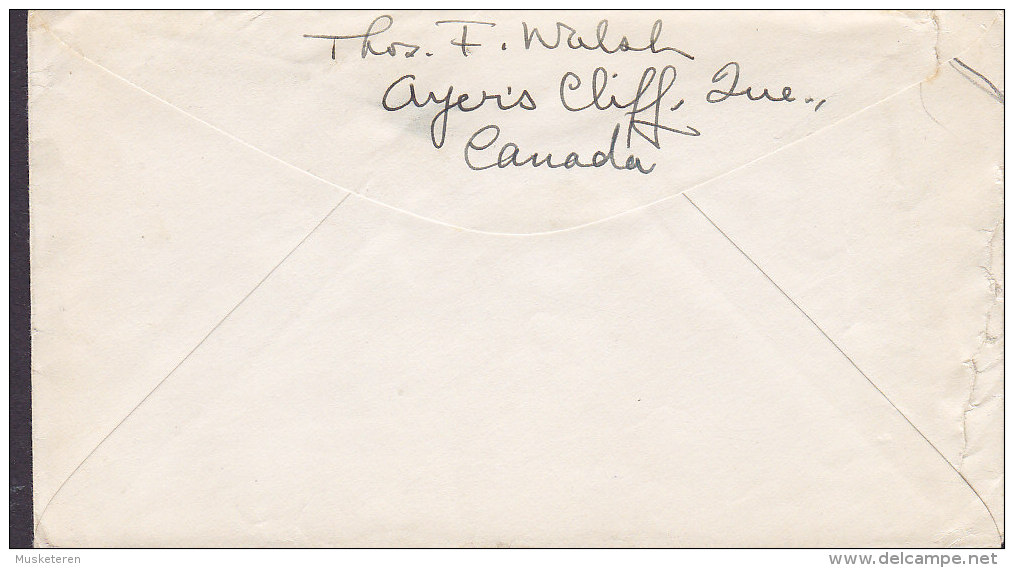 Thos. F. Walsh
Ayer's Cliff, Que.,
Canada
Musketeren
delcampe.net